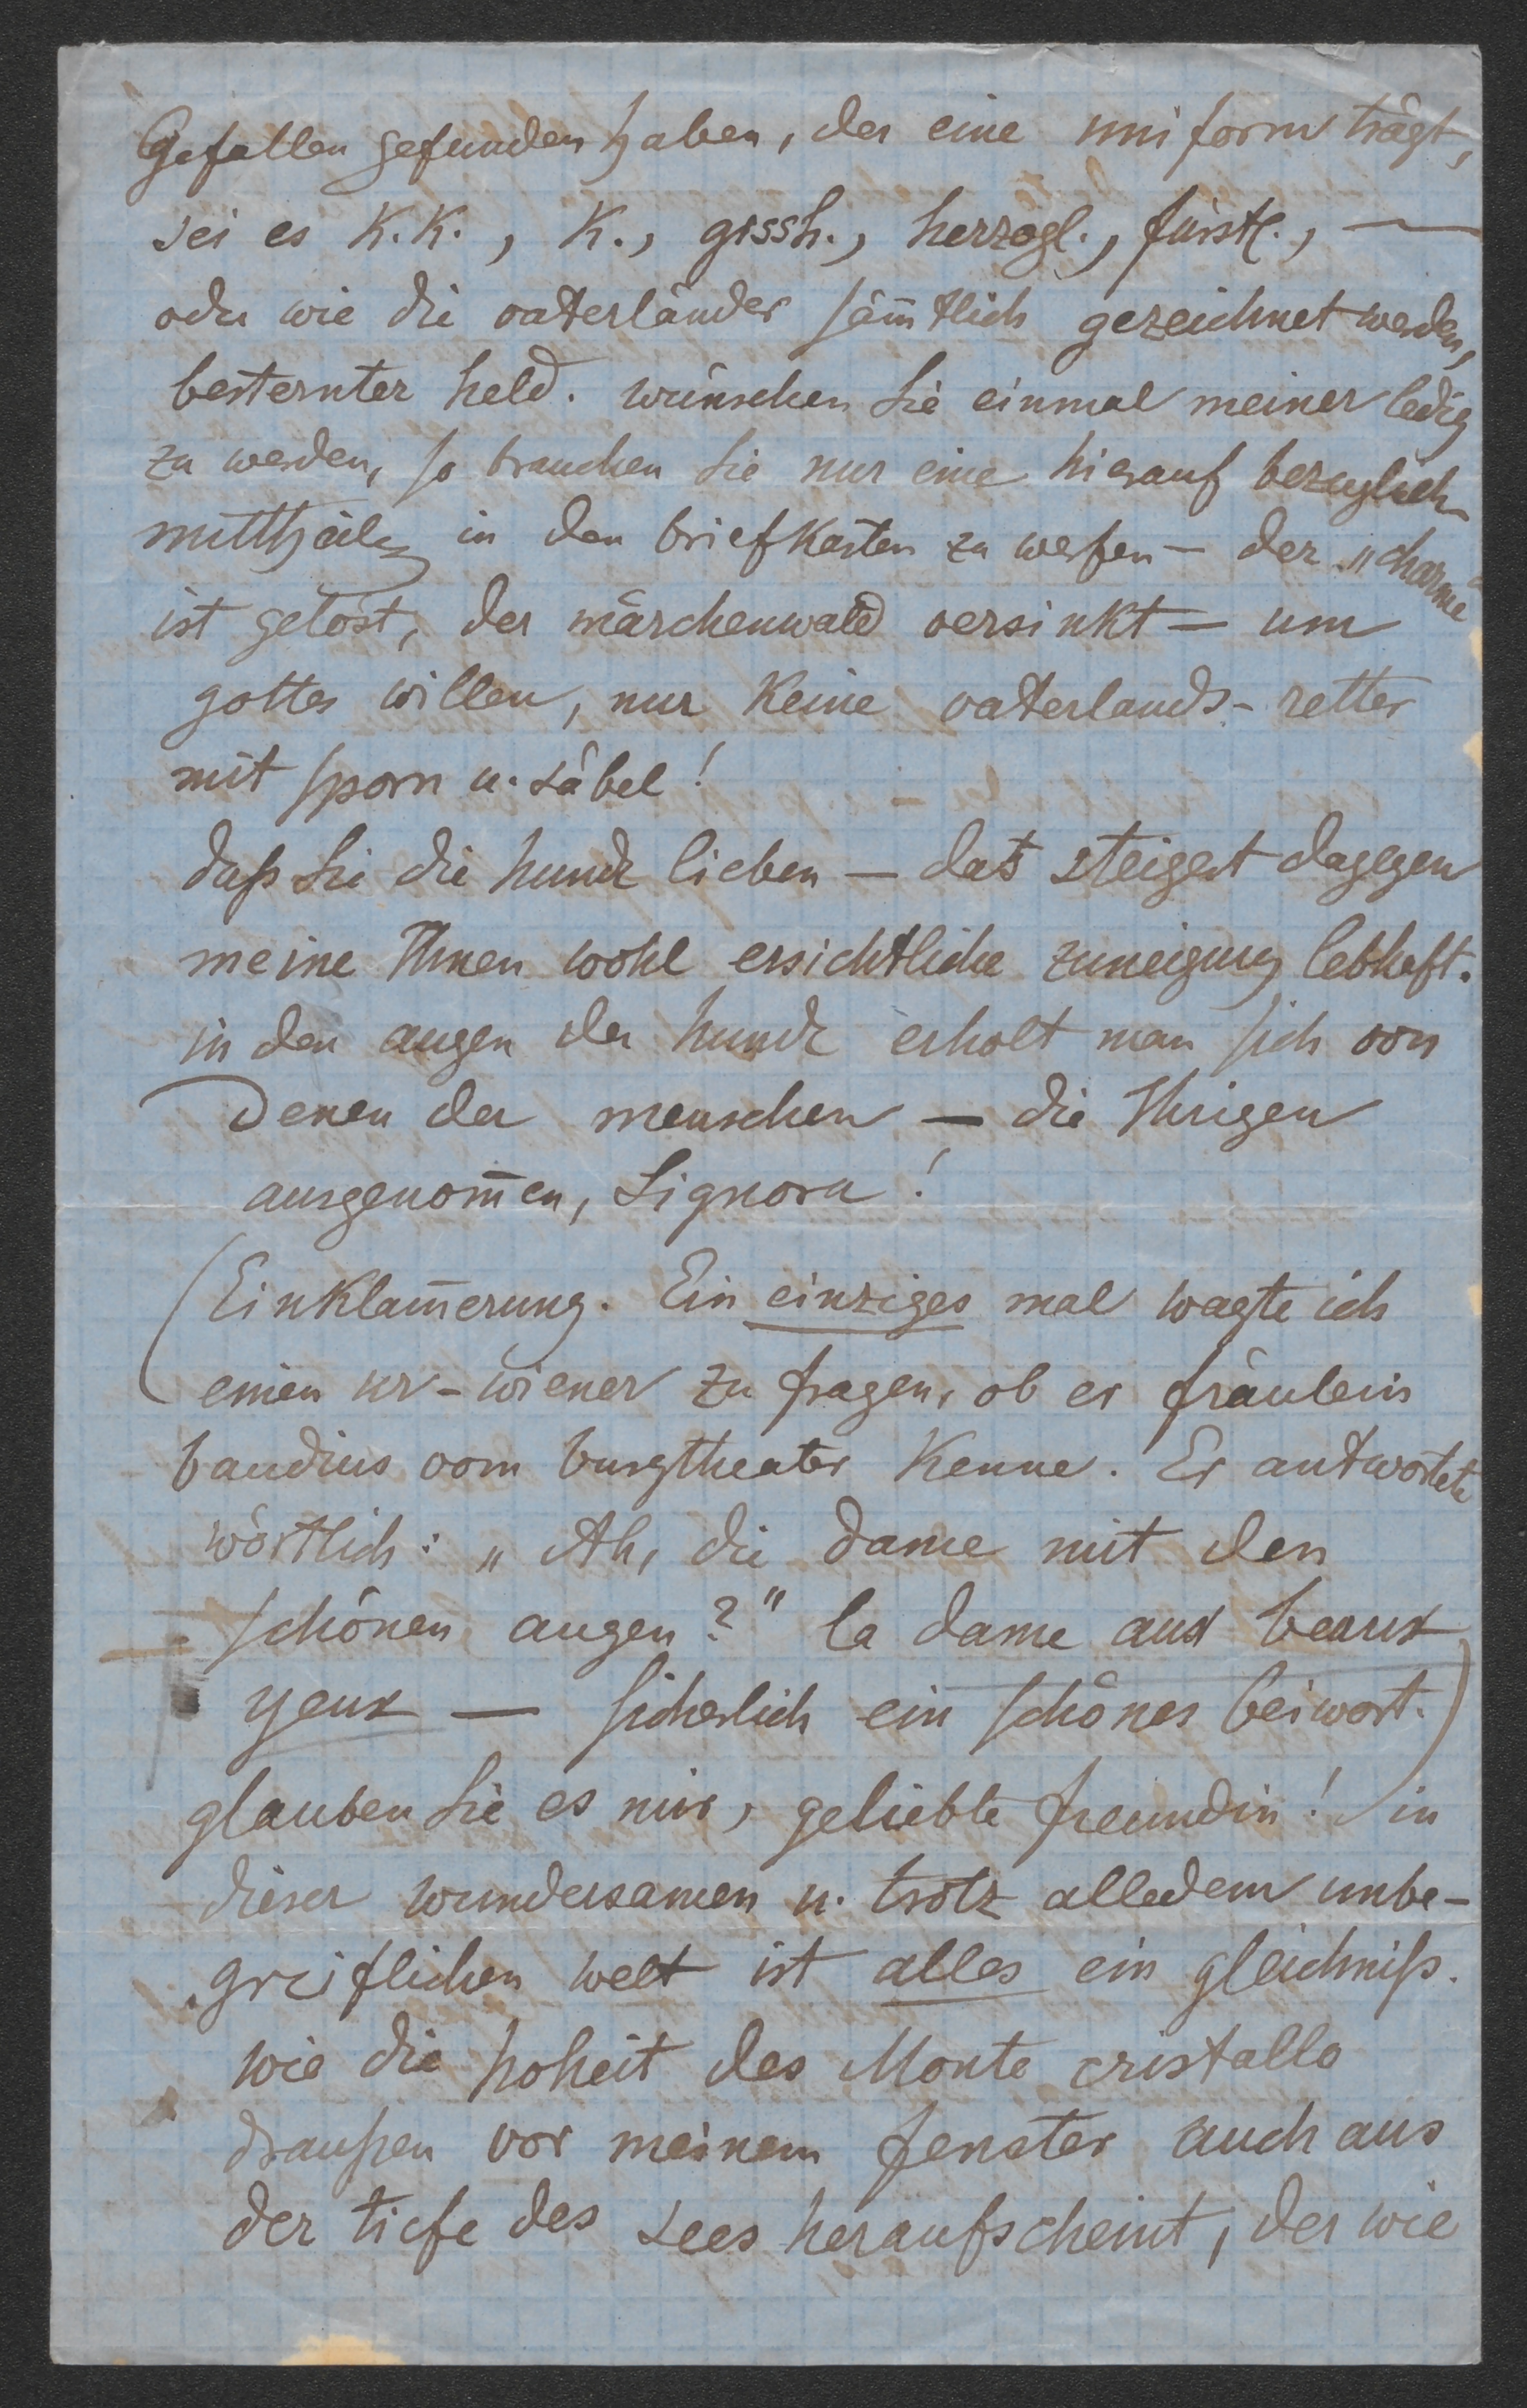 Gefallen gefunden haben, der eine uniform trägt,
sei es K.K., K., grssh., herzogl., fürstl., —
oder wie die vaterländer säm̅tlich gezeichnet werden,
besternter held. wünschen Sie einmal meiner ledig
zu werden, so brauchen Sie nur eine hierauf bezuglich
mittheilg in den briefkasten zu werfen — der „charme“
ist gelöst, der märchenwald versinkt — um
gottes willen, nur keine vaterlands-retter
mit sporn u. säbel!
daß Sie die hunde lieben — das steigert dagegen
meine Ihnen wohl ersichtliche zuneigung lebhaft.
in den augen der hunde erholt man sich von
denen der menschen — die Ihrigen
ausgenom̅en, Signora!
(Einklam̅erung. Ein einziges mal wagte ich
einen ur-wiener zu fragen, ob er fräulein
baudius vom burgtheater kenne. Er antwortete
wörtlich: „Ah, die dame mit den
schönen augen?" la dame aux beaux
yeux — sicherlich ein schönes beiwort.)
glauben Sie es mir, geliebte freundin! in
dieser wundersamen u. trotz alledem unbe-
greiflichen welt ist alles ein gleichniß.
wie die hoheit des Monte cristallo
draußen vor meinem fenster auch aus
der tiefe des sees heraufscheint, der wie